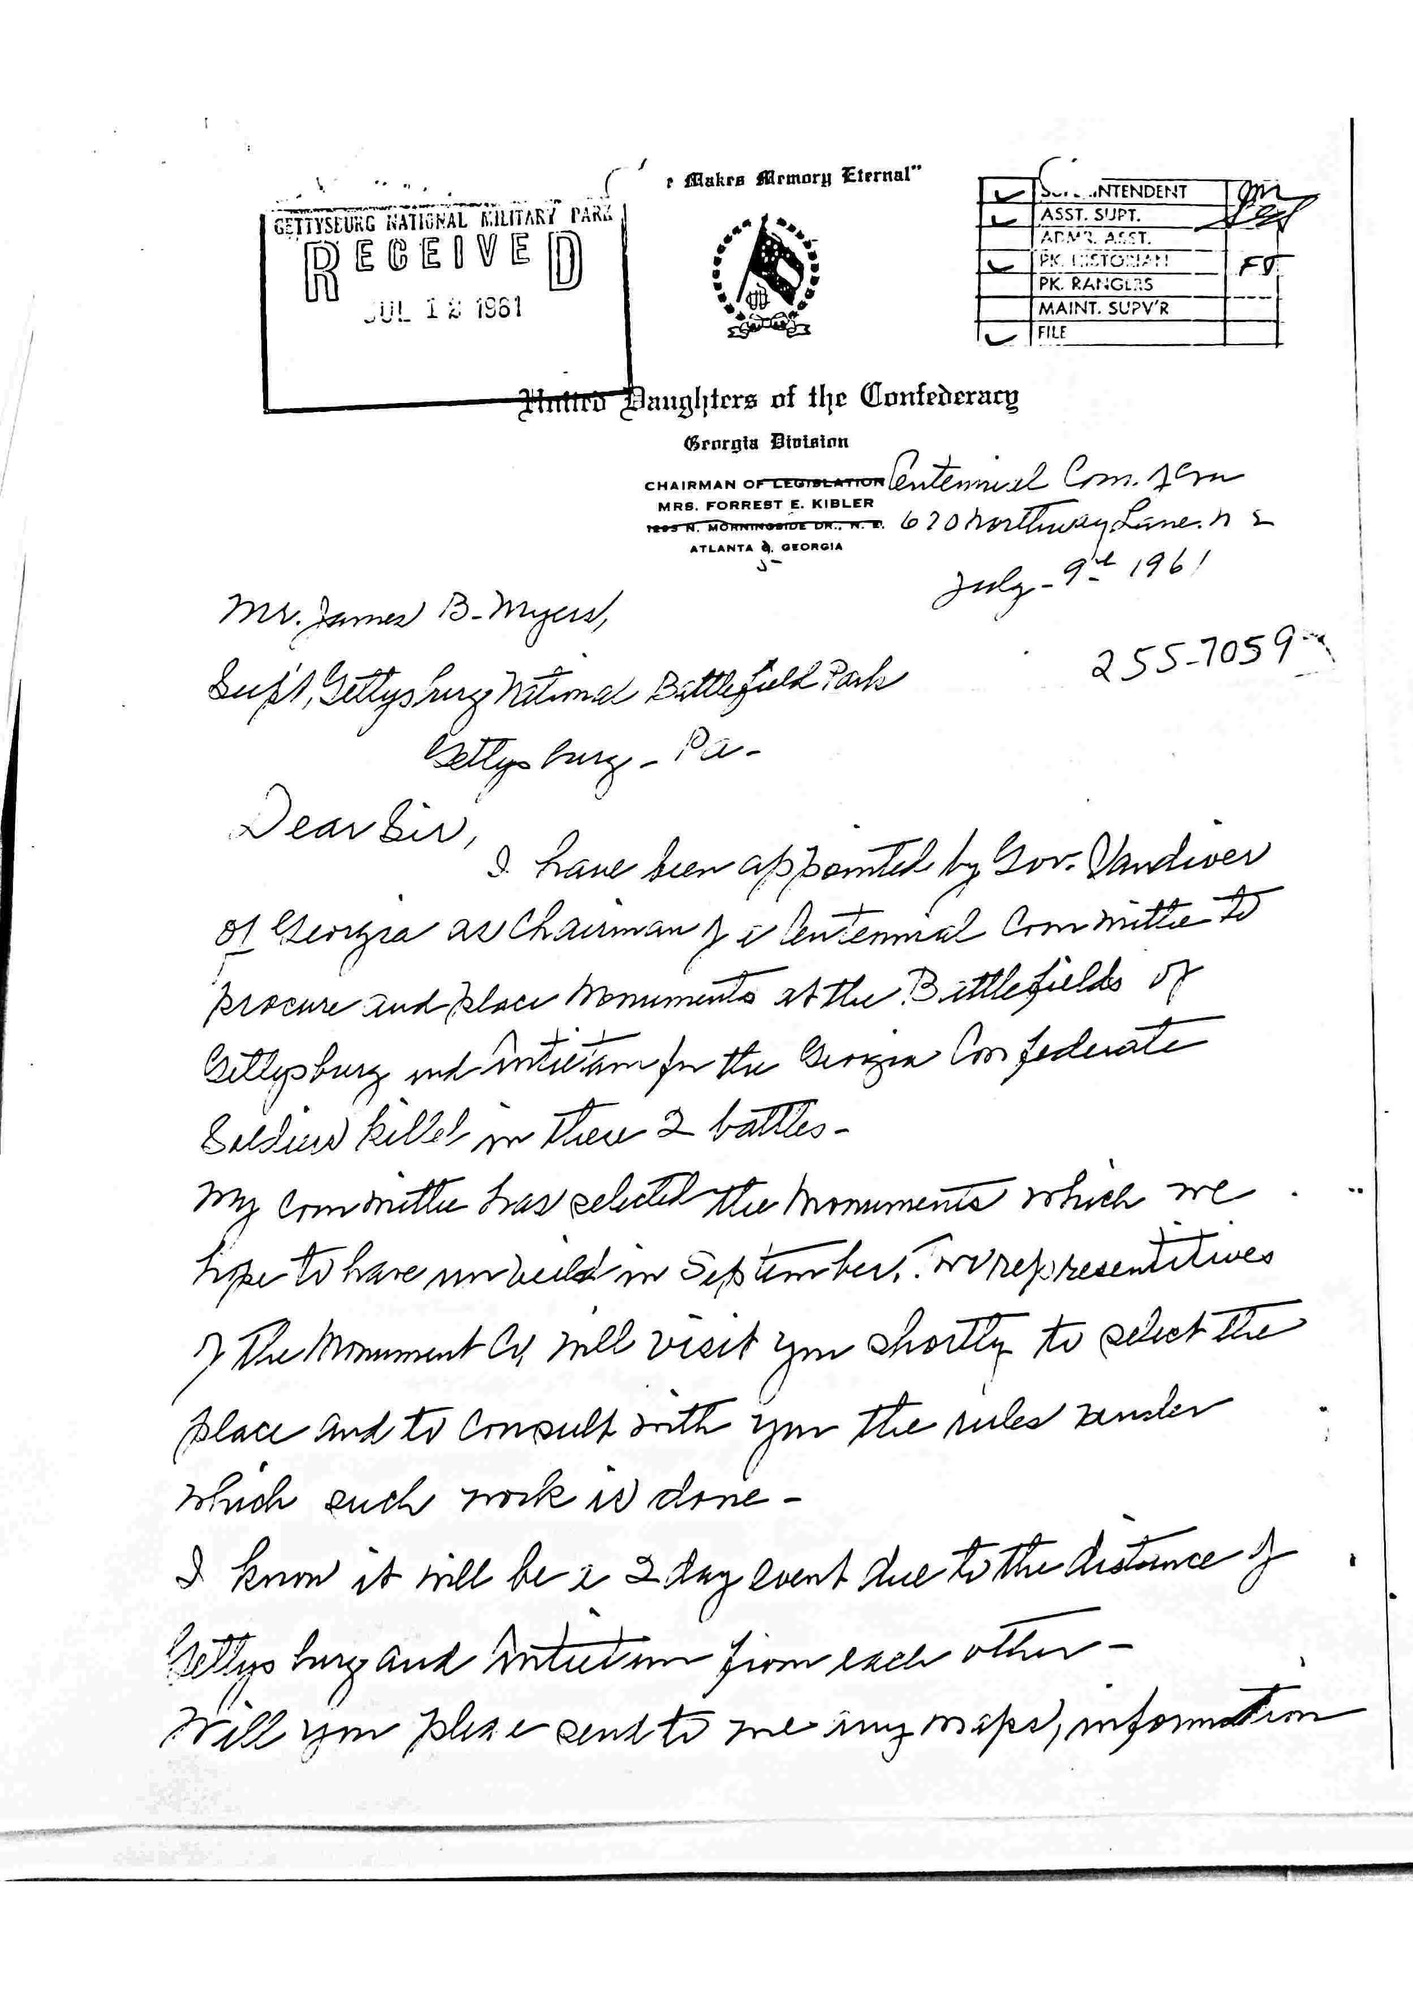 Makes Memory Eternal"
GETTYSBURG NATIONAL MILITARY PARK
RECEIVED
JUL 12 1961
SUPERINTENDENT
ASST. SUPT.
ADMR. ASST.
PK. HISTORIAN
PK. RANGERS
MAINT. SUPV'R
FILE
United Daughters of the Confederacy
Georgia Division
CHAIRMAN OF LEGISLATION Centennial Com. for
MRS. FORREST E. KIBLER
1293 N. MORNINGSIDE DR., N. E. 620 Northway Lane. N E
ATLANTA GEORGIA
5
July - 9th 1961
Mr. James B. Myers,
255-7059
Supt, Gettysburg National Battlefield Park
Gettysburg - Pa -
Dear Sir,
I have been appointed by Gov. Vandiver
of Georgia as Chairman of a Centennial Committee to
procure and place Monuments at the Battlefields of
Gettysburg and Antietam for the Georgia Confederate
Soldiers killed in these 2 battles -
My Committee has selected the Monuments which we
hope to have unveiled in September. Two representitives
of the Monument Co, will visit you shortly to select the
place and to consult with you the rules under
which such work is done -
I know it will be a 2 day event due to the distance of
Gettysburg and Antietam from each other -
Will you please send to me any maps, information